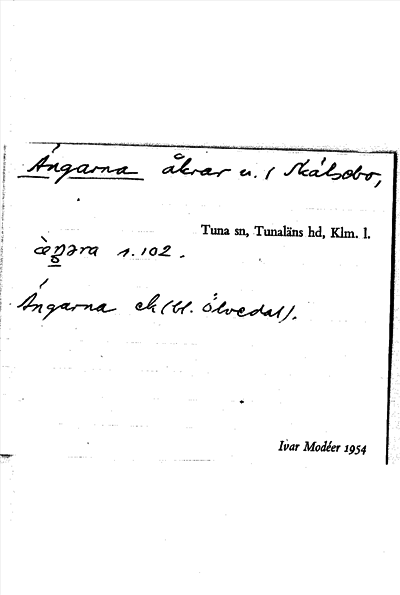 Ängarna åkrar u. 1 Skälsebo,
Tuna sn, Tunaläns hd, Klm. l.
s. 102.
Ängarna ek (bl. Ölvedal).
Ivar Modéer 1954